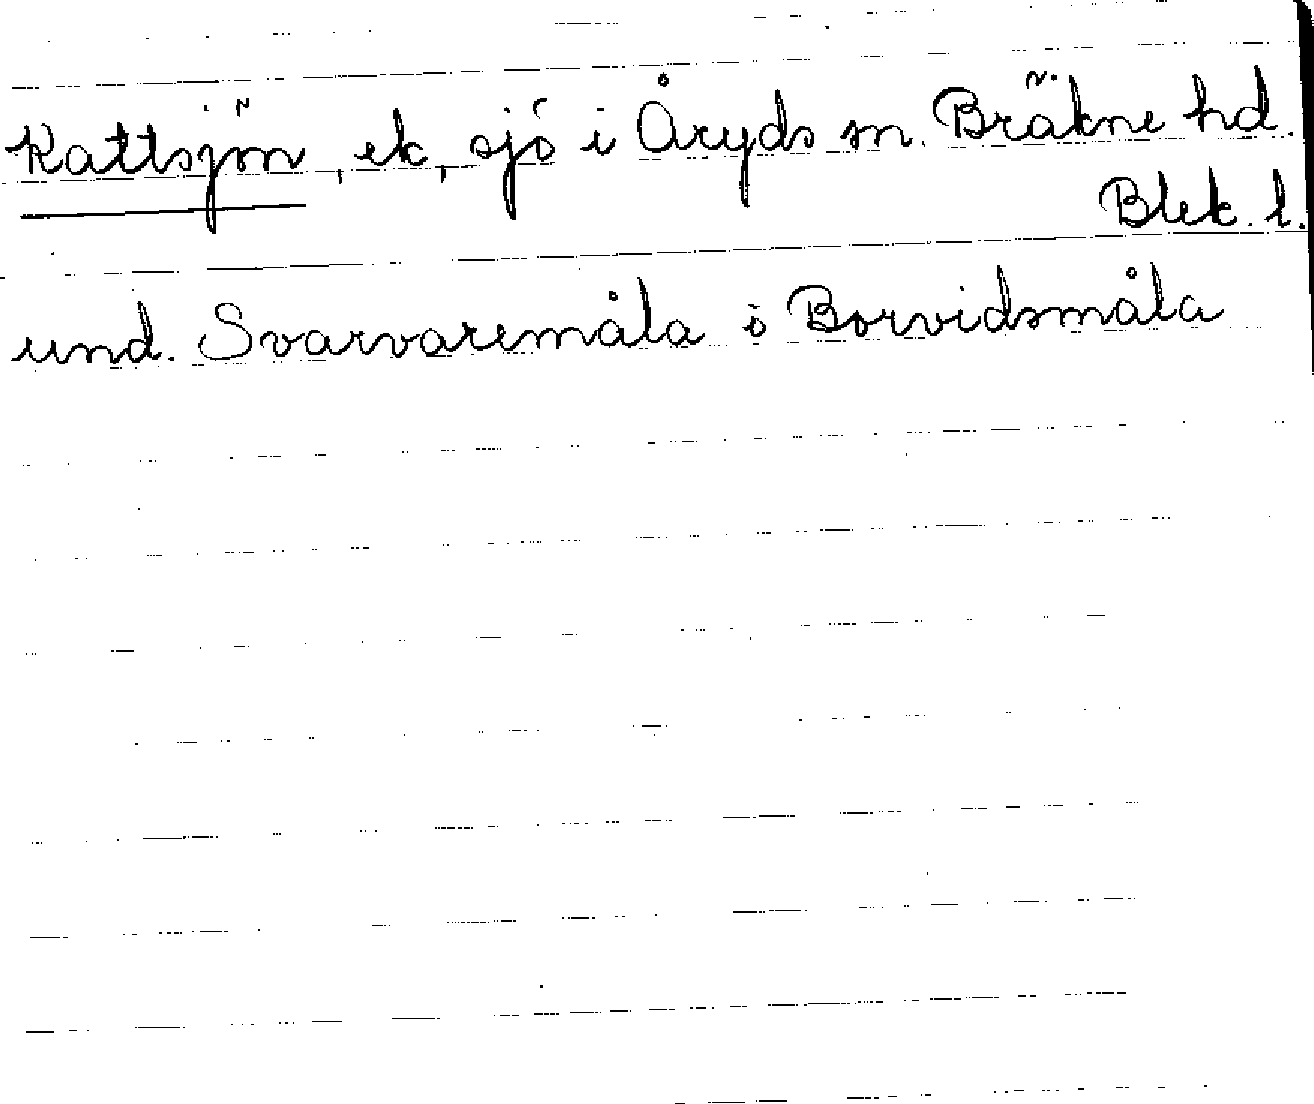 Kattsjön, ek, sjö i Åryds sn. Bräkne hd.
Blek. l.
und. Svarvaremåla ö Borvidsmåla